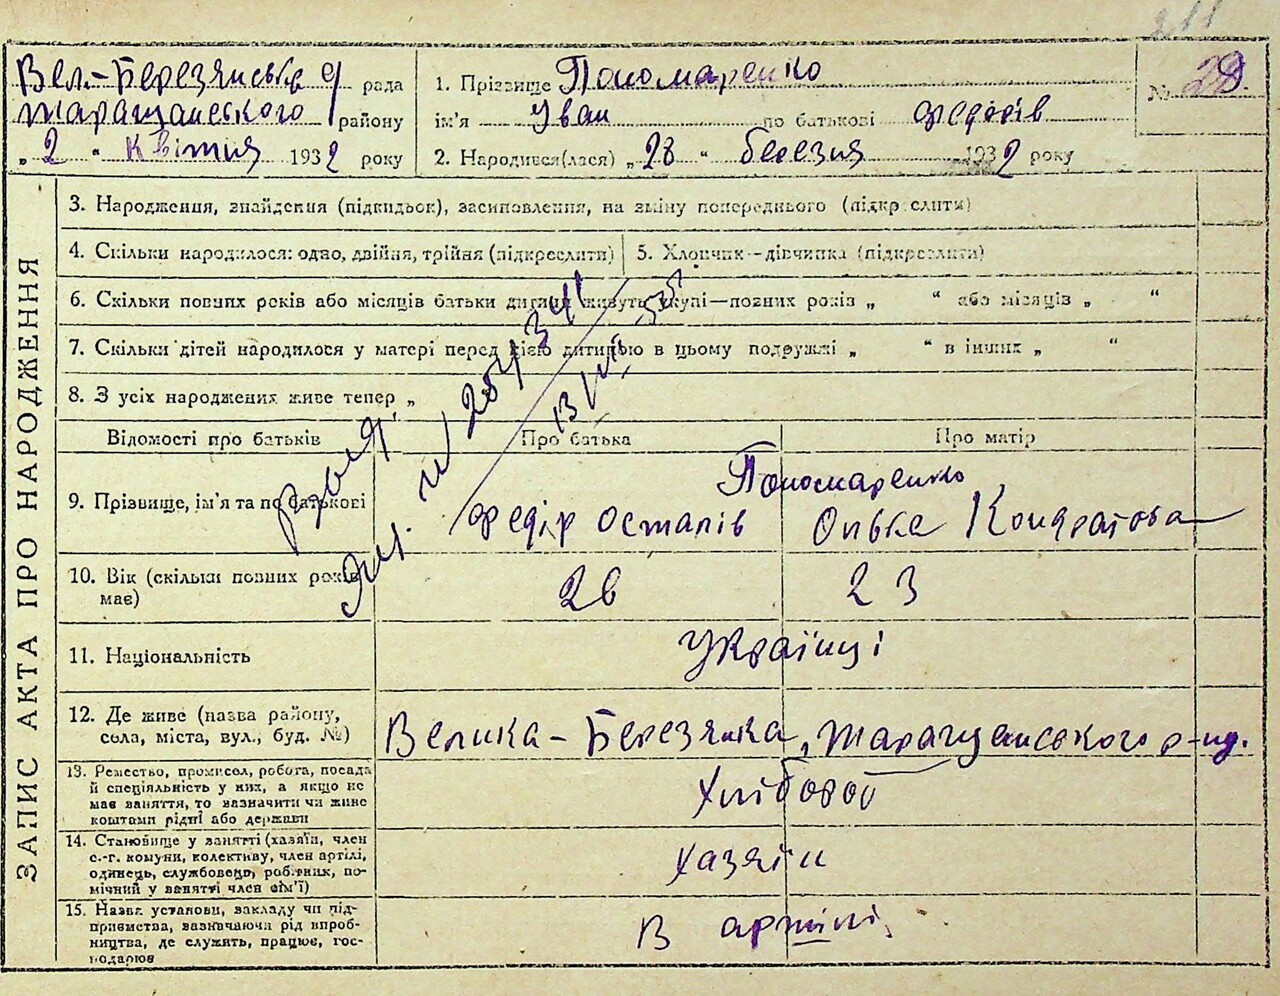 211
Вел.-Березянська рада
Таращанського району
„ 2 “ квітня 1932 року
1. Прізвище Пономаренко
ім'я Іван по батькові Федорів
2. Народився(лася) „ 28 “ березня 1932 року
№ 29.
ЗАПИС АКТА ПРО НАРОДЖЕННЯ
3. Народження, знайдення (підкидьок), засиновлення, на зміну попереднього (підкреслити)
4. Скільки народилося: одно, двійня, трійня (підкреслити)
5. Хлопчик—дівчинка (підкреслити)
6. Скільки повних років або місяців батьки дитини живуть укупі—повних років „ “ або місяців „ “
7. Скільки дітей народилося у матері перед цією дитиною в цьому подружжі „ “ в інших „ “
8. З усіх народжених живе тепер „
Відомості про батьків
Про батька
Про матір
9. Прізвище, ім'я та по батькові
Пономаренко
Федір Остапів
Олька Кондратова
10. Вік (скільки повних років
має)
26
23
11. Національність
Українці
12. Де живе (назва району,
села, міста, вул., буд. №)
Велика-Березянка, Таращанського р-ну.
13. Ремество, промисел, робота, посада
й спеціяльність у них, а якщо не
має заняття, то зазначити чи живе
коштами рідні або держави
Хлібороб
14. Становище у занятті (хазяїн, член
с.-г. комуни, колективу, член артілі,
одинець, службовець, робітник, по-
мічний у занятті член сім'ї)
хазяїн
15. Назва установи, закладу чи під-
приємства, зазначаючи рід вироб-
ництва, де служить, працює, гос-
подарює
В артілі,